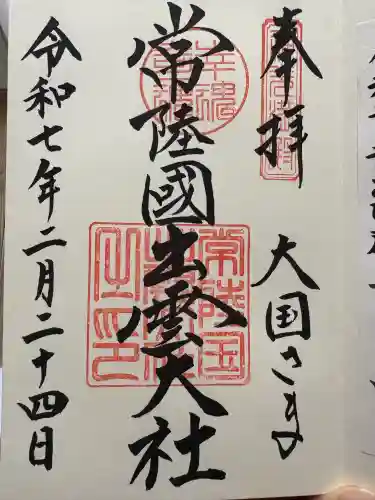 奉拝
大国さま
常陸國出雲大社
令和七年二月二十四日
常陸国出雲大社之印